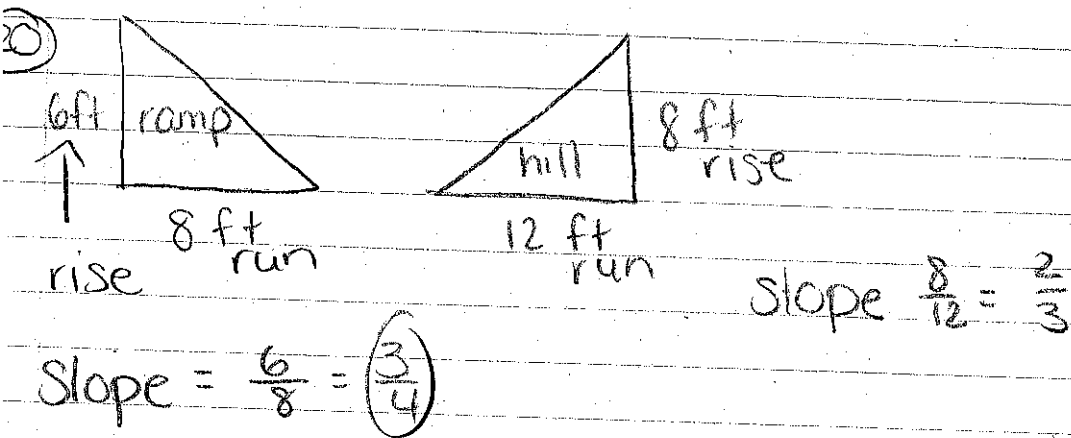 20
6ft ramp
8 ft
run
rise
hill
8 ft
rise
12 ft
run
Slope 8/12 = 2/3
Slope = 6/8 = 3/4